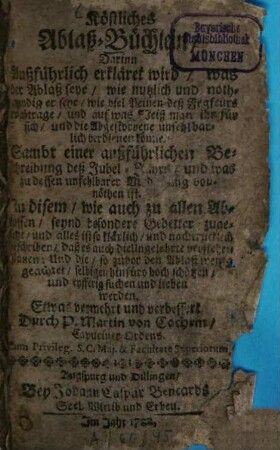 Köstliches
Ablaß-Büchlein/
Bayerische
Staatsbibliothek
MÜNCHEN
Darinn
Außführlich erkläret wird / was
der Ablaß seye / wie nutzlich und noth-
wendig er seye / wie viel Peinen deß Fegfeurs
er / und auf was Weiß man ihn für
sich / und die Abgestorbene unfehlbar-
lich verdienen könne.
Sambt einer außführlichen Be-
schreibung deß Jubel-Jahrs / und was
zu dessen unfehlbarer von-
nöthen ist.
Zu disem / wie auch zu allen Ab-
lässen / seynd besondere Gebetter zuge-
/ und alles so klärlich / und
/ daß es auch die Ungelehrte verstehen
können: Und die / so zuvor den Ablaß wenig
geachtet / selbigen hinfüro hoch schätzen /
und eyfferig suchen und lieben
werden.
Etwas vermehrt und verbessert
Durch P. Martin von Cochem /
Capuciner Ordens.
Cum Privileg. S. C. Maj. & Facultate Superiorum.
Augspurg und Dillingen /
Bey Johann Caspar Bencards
Seel. Wittib und Erben.
Im Jahr 1722.